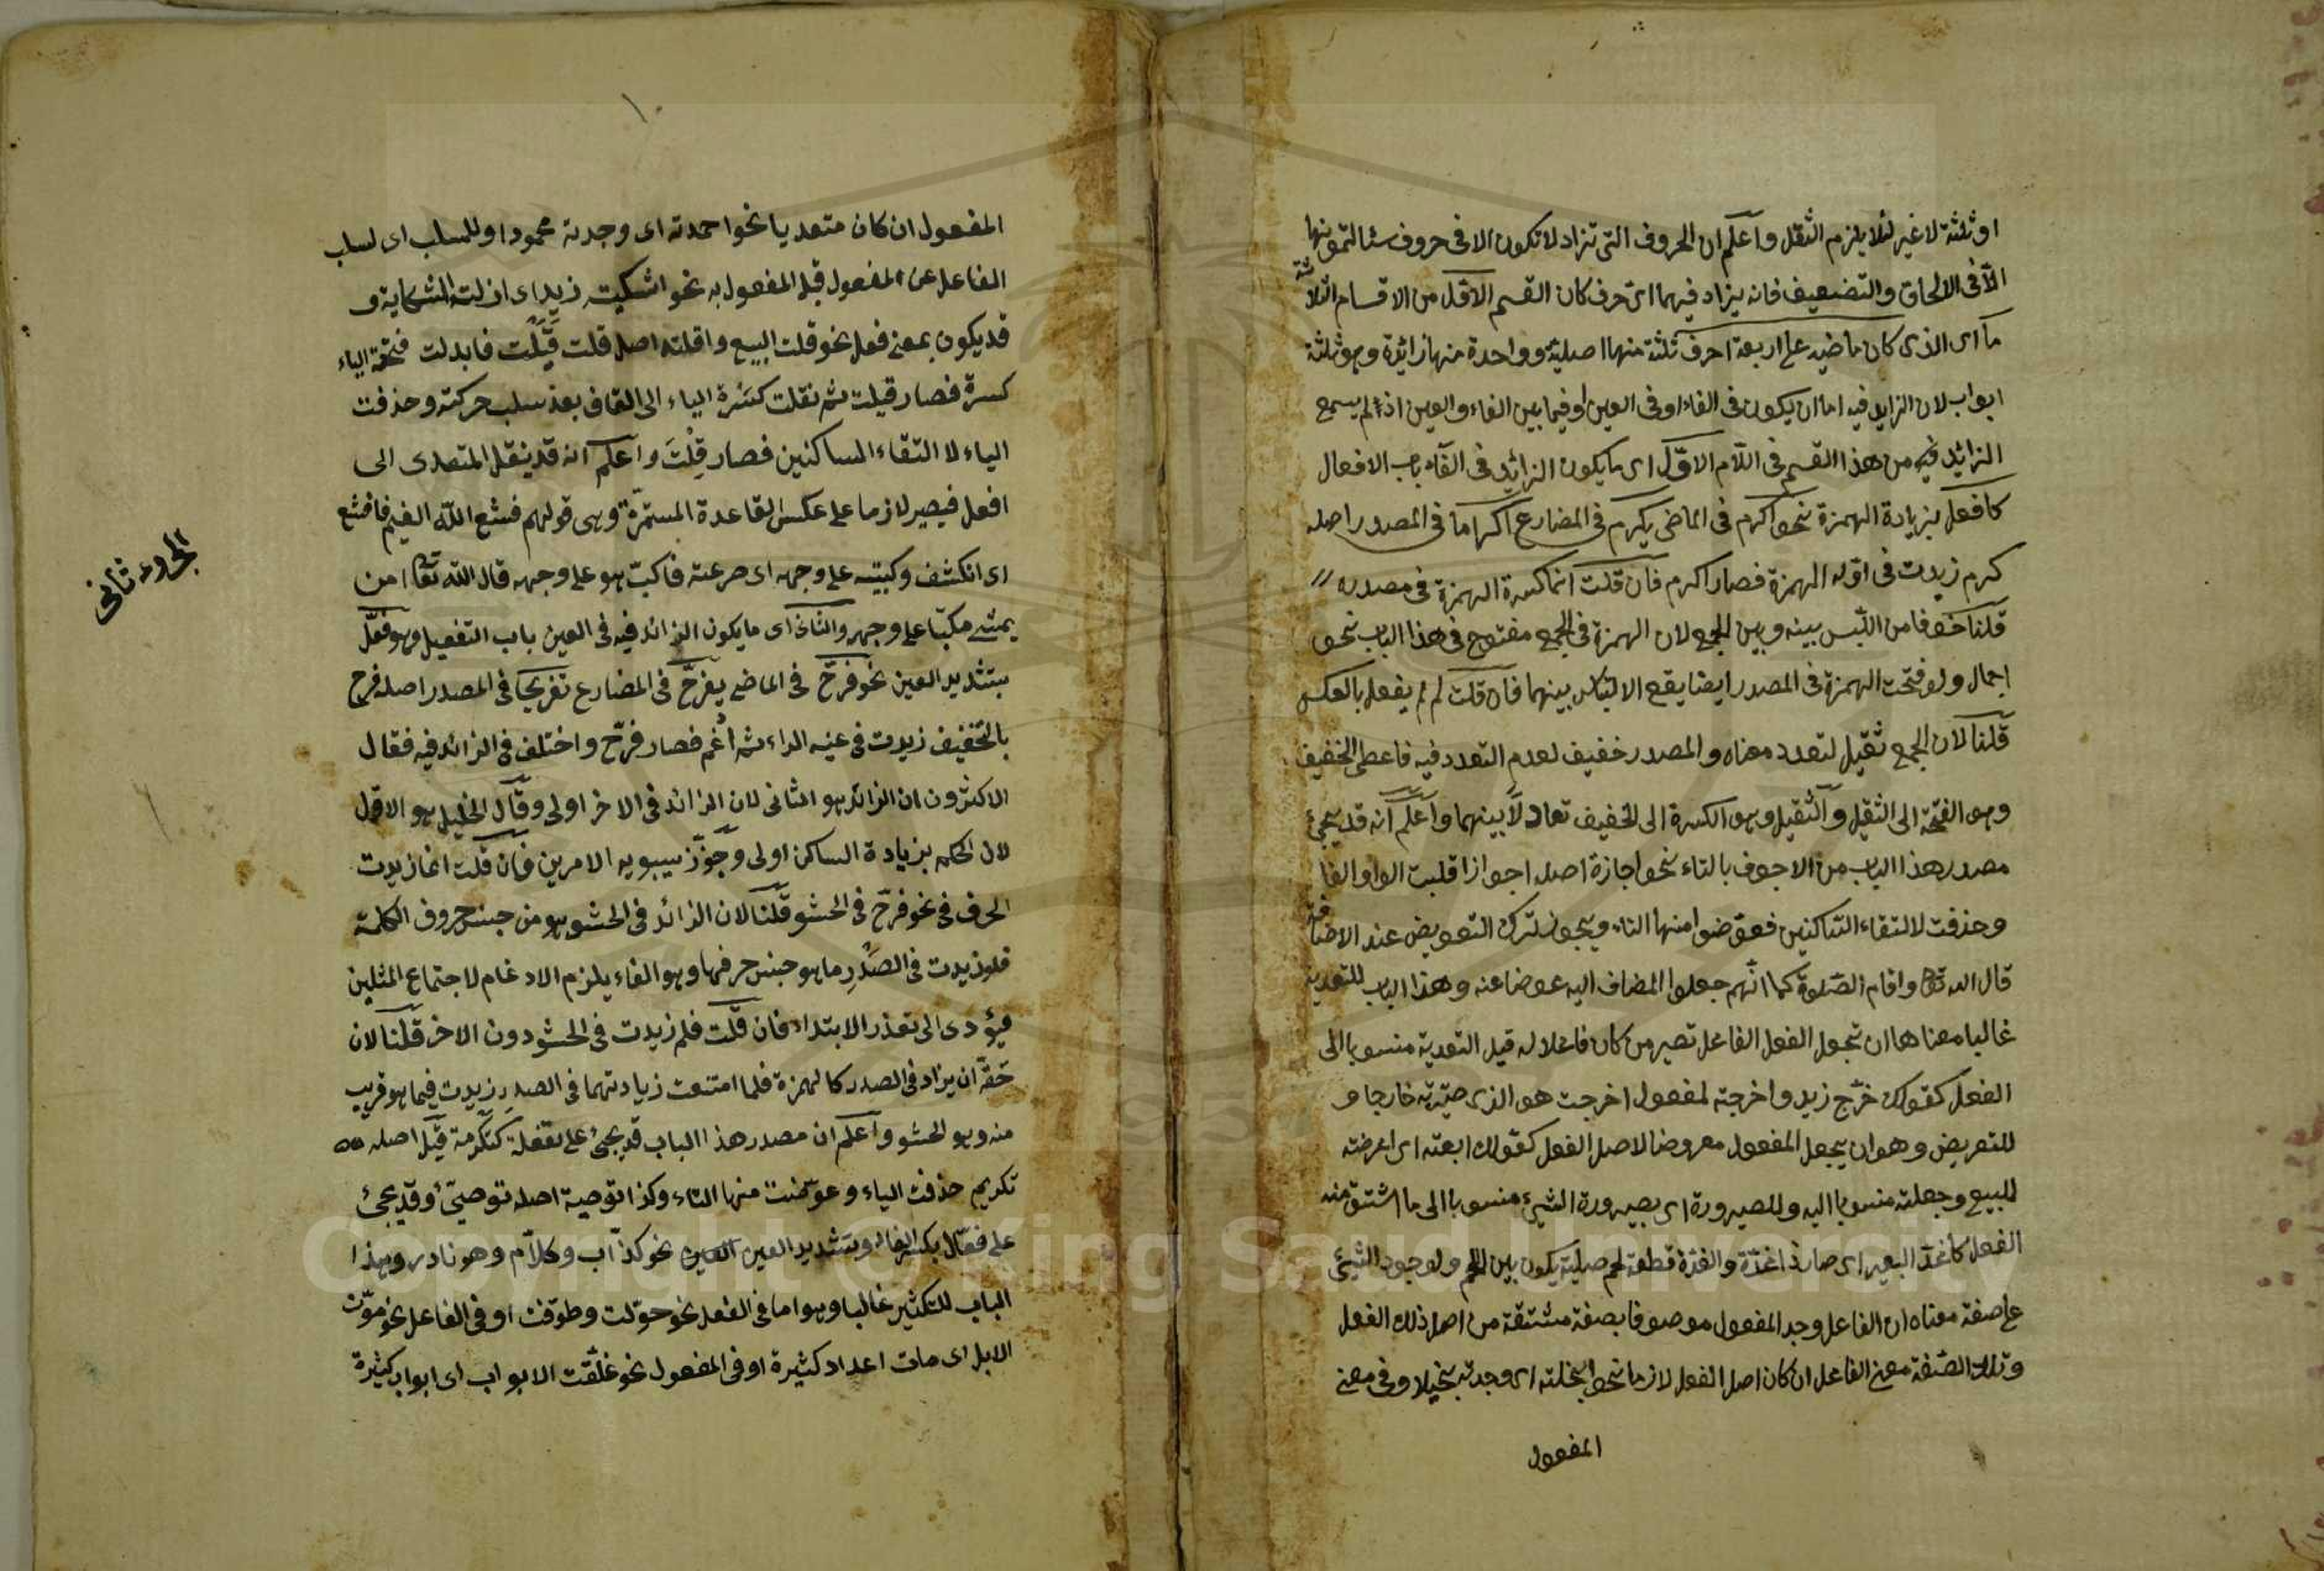 او ثلثة لا غير لئلا يلزم الثقل واعلم ان الحروف التى تزاد لا تكون الا فى حروف سئالتمونيها
الّا فى الالحاق والتضعيف فانه يزاد فيهما اىّ حرف كان القسم الاوّل من الاقسام الثلاثة
ما اى الذى كان ماضيه على اربعة احرف ثلثة منها اصلية وواحدة منها زائدة وهو ثلثة
ابواب لان الزايد فيه اما ان يكون فى الفاء او فى العين او فيما بين الفاء والعين اذ لم يسمع
الزائد فيه من هذا القسم فى اللّام الاوّل اى ما يكون الزائد فى الفاء باب الافعال
كافعل بزيادة الهمزة نحو اكرم فى الماضى يكرم فى المضارع اكراما فى المصدر اصله
كرم زيدت فى اوّله الهمزة فصار اكرم فان قلت انما كسرة الهمزة فى مصدره
قلنا خوفا من اللّبس بينه وبين الجمع لان الهمزة فى الجمع مفتوح فى هذا الباب نحو
اجمال ولو فتحت الهمزة فى المصدر ايضا يقع الالتباس بينهما فان قلت لم لم يفعل بالعكس
قلنا لان الجمع ثقيل لتعدد معناه والمصدر خفيف لعدم التعدد فيه فاعطى الخفيف
وهو الفتحة الى الثقيل والثقيل وهو الكسرة الى الخفيف تعادلا بينهما واعلم انه قد يجئ
مصدر هذا الباب من الاجوف بالتاء نحو اجازة اصله اجوازا قلبت الواو الفا
وحذفت لالتقاء السّاكنين فعوّضوا منها التاء ويجوز ترك التعويض عند الاضافة
قال الله تعا واقام الصّلوة كما انّهم جعلوا المضاف اليه عوضا عنه وهذا الباب للتعدية
غالبا معناها ان تجعل الفعل الفاعل تصير من كان فاعلا له قبل التعدية منسوبا الى
الفعل كقولك خرج زيد واخرجته لمفعول اخرجت هو الذى صيّرته خارجا و
للتعريض وهو ان يجعل المفعول معروضا لاصل الفعل كقولك ابعته اى اعرضته
للبيع وجعلته منسوبا اليه وللصيرورة اى بصيرورة الشئ منسوبا الى ما اشتق منه
الفعل كاغدّ البعير اى صار ذا غدّة والغدّة قطعة لحم صلبة يكون بين اللحم ولوجود الشئ
على صفة معناه ان الفاعل وجد المفعول موصوفا بصفة مشتقة من اصل ذلك الفعل
وتلك الصّفة معنى الفاعل ان كان اصل الفعل لازما نحو ابخلته اى وجدته بخيلا وفى معنى
المفعول
١٠
المفعول ان كان متعديا نحو احمدته اى وجدته محمودا وللسلب اى لسلب
الفاعل عن المفعول قبل المفعول به نحو اشكيت زيدا اى ازلت الشكاية و
قد يكون بمعنى فعل نحو قلت البيع واقلته اصل قلت قَيَلْت فابدلت فتحة الياء
كسرة فصار قيلت ثم نقلت كسرة الياء الى القاف بعد سلب حركته وحذفت
الياء لا التقاء الساكنين فصار قِلْتَ واعلم انه قد ينقل المتعدى الى
افعل فيصير لازما على عكس القاعدة المستمرّة وهى قولهم قشع الله الغيم فاقشع
اى انكشف وكببته على وجهه اى صرعته فاكبّ هو على وجهه قال الله تعا امن
يمشى مكبّا على وجهه والثانى اى ما يكون الزائد فيه فى العين باب التفعيل وهو فعّل
بتشديد العين نحو فرّح فى الماضى يفرّح فى المضارع تفريحا فى المصدر اصله فرح
بالتخفيف زيدت فى عينه الراء ثم ادغم فصار فرّح واختلف فى الزائد فيه فقال
الاكثرون ان الزائد هو الثانى لان الزائد فى الاخر اولى وقال الخليل هو الاوّل
لان الحكم بزيادة الساكن اولى وجوّز سيبويه الامرين فان قلت انما زيدت
الحرف فى نحو فرّح فى الحشو قلنا لان الزائد فى الحشو هو من جنس حروف الكلمة
فلو زيدت فى الصَدْر ما هو جنس حرفها وهو الفاء يلزم الادغام لاجتماع المثلين
فيؤدى الى تعذر الابتداء فان قلت فلم زيدت فى الحشو دون الاخر قلنا لان
حقّه ان يزاد فى الصدر كالهمزة فلما امتنعت زيادتهما فى الصدر زيدت فيما هو قريب
منه وهو الحشو واعلم ان مصدر هذا الباب قد يجئ على تفعلة كتكرمة قيل اصله
تكريم حذفت الياء وعوّضت منها التاء وكذا توصية اصله توصيّ وقد يجئ
على فعّال بكسر الفاء وبتشديد العين العين نحو كذّاب وكلّام وهو نادر وهذا
الباب للتكثير غالبا وهو اما فى الفعل نحو حوّلت وطوّفت او فى الفاعل نحو موّت
الابل اى مات اعداد كثيرة او فى المفعول نحو غلّقت الابواب اى ابواب كثيرة
ثانى
Copyright © King Saud University
1957